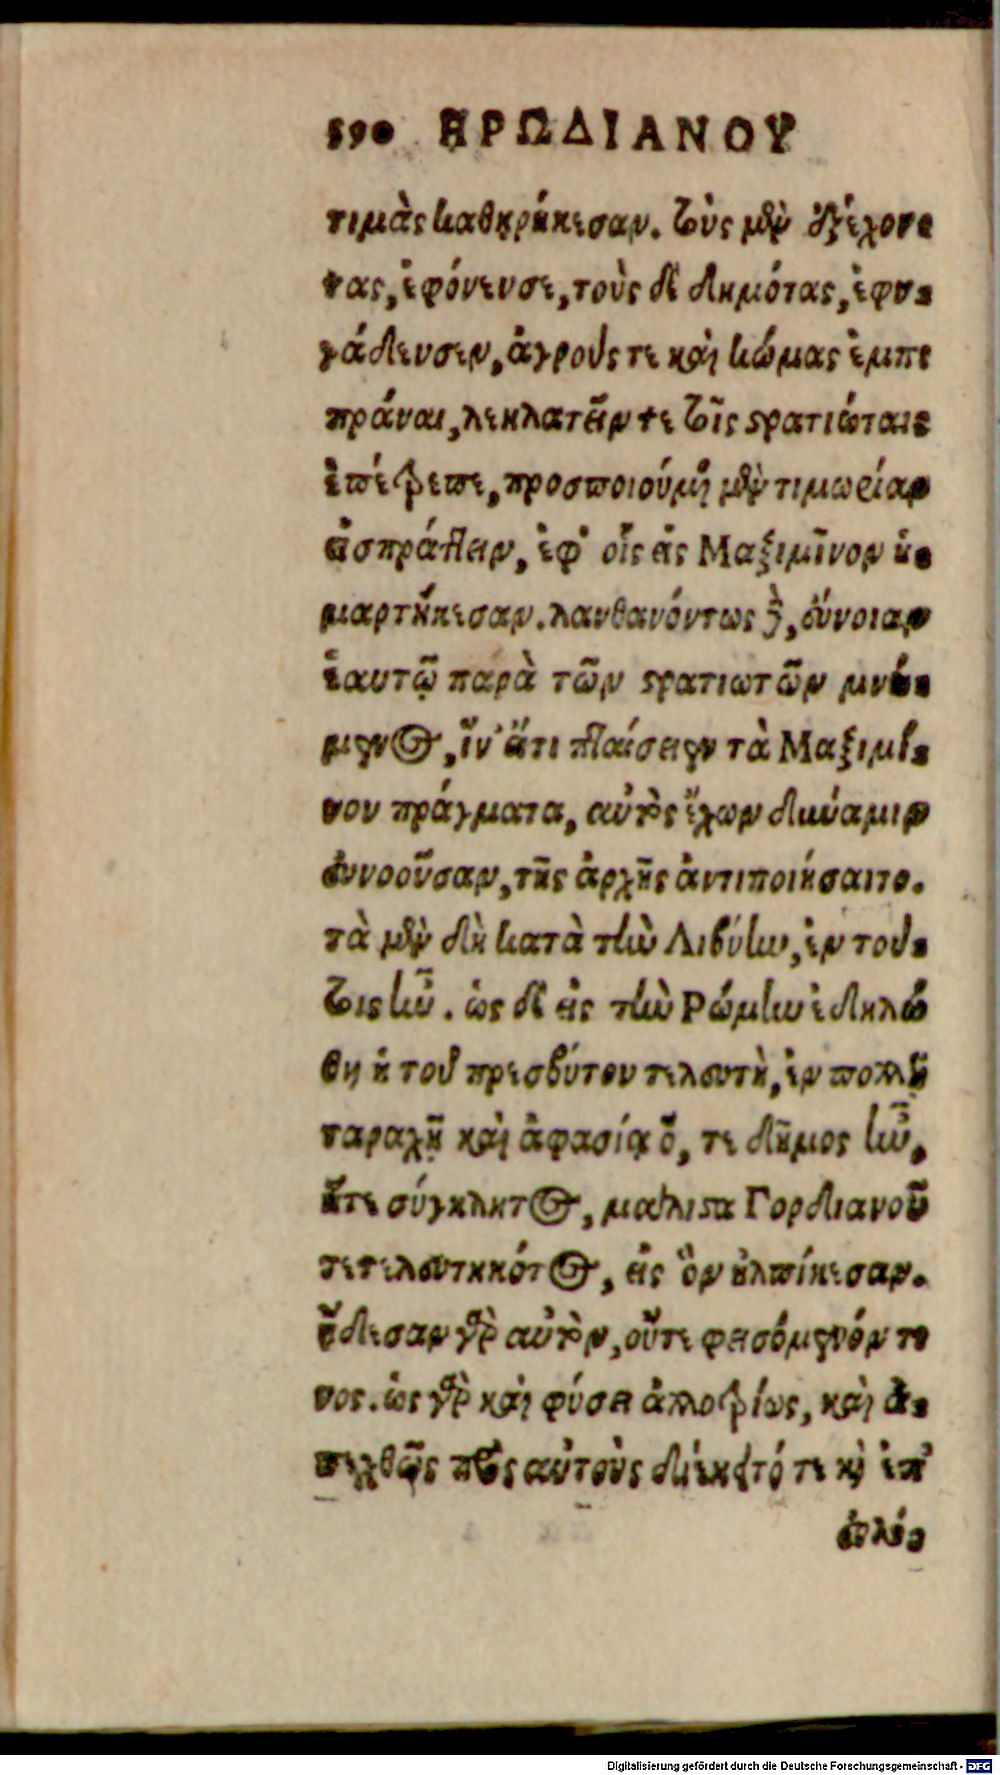 590 ΗΡΩΔΙΑΝΟΥ
τιμὰς καθῃρήκεσαν. τοὺς μὲν ἐξέχον-
τας, ἐφόνευσε, τοὺς δὲ δημότας, ἐφυ-
γάδευσεν, ἀγρούς τε καὶ κώμας ἐμπι
πράναι, λεηλατεῖν τε τοῖς στρατιώταις
ἐπέτρεπε, προσποιούμενος μὲν τιμωρίαν
εἰσπράττειν, ἐφ' οἷς εἰς Μαξιμῖνον ἡ-
μαρτήκεσαν. λανθανόντως δὲ, εὔνοιαν
ἑαυτῷ παρὰ τῶν στρατιωτῶν μνώ-
μενος, ἵν' εἴ τι πταίσειεν τὰ Μαξιμί-
νου πράγματα, αὐτὸς ἔχων δύναμιν
εὐνοοῦσαν, τῆς ἀρχῆς ἀντιποιήσαιτο.
τὰ μὲν δὴ κατὰ τὴν Λιβύην, ἐν τού-
τοις ἦν. ὡς δὲ εἰς τὴν Ῥώμην ἐδηλώ
θη ἡ τοῦ πρεσβύτου τελευτὴ, ἐν πολλῇ
ταραχῇ καὶ ἀφασίᾳ ὅ, τε δῆμος ἦν,
ἥτε σύγκλητος, μάλιστα Γορδιανοῦ
τετελευτηκότος, εἰς ὃν ἠλπίκεσαν.
ᾔδεσαν γὰρ αὐτὸν, οὔτε φεισόμενόν τι
νος. ὡς γὰρ καὶ φύσει ἀλλοτρίως, καὶ ἀ-
πεχθῶς πρὸς αὐτοὺς διέκειτό τε καὶ ἐπ'
εὐλό-
Digitalisierung gefördert durch die Deutsche Forschungsgemeinschaft - DFG